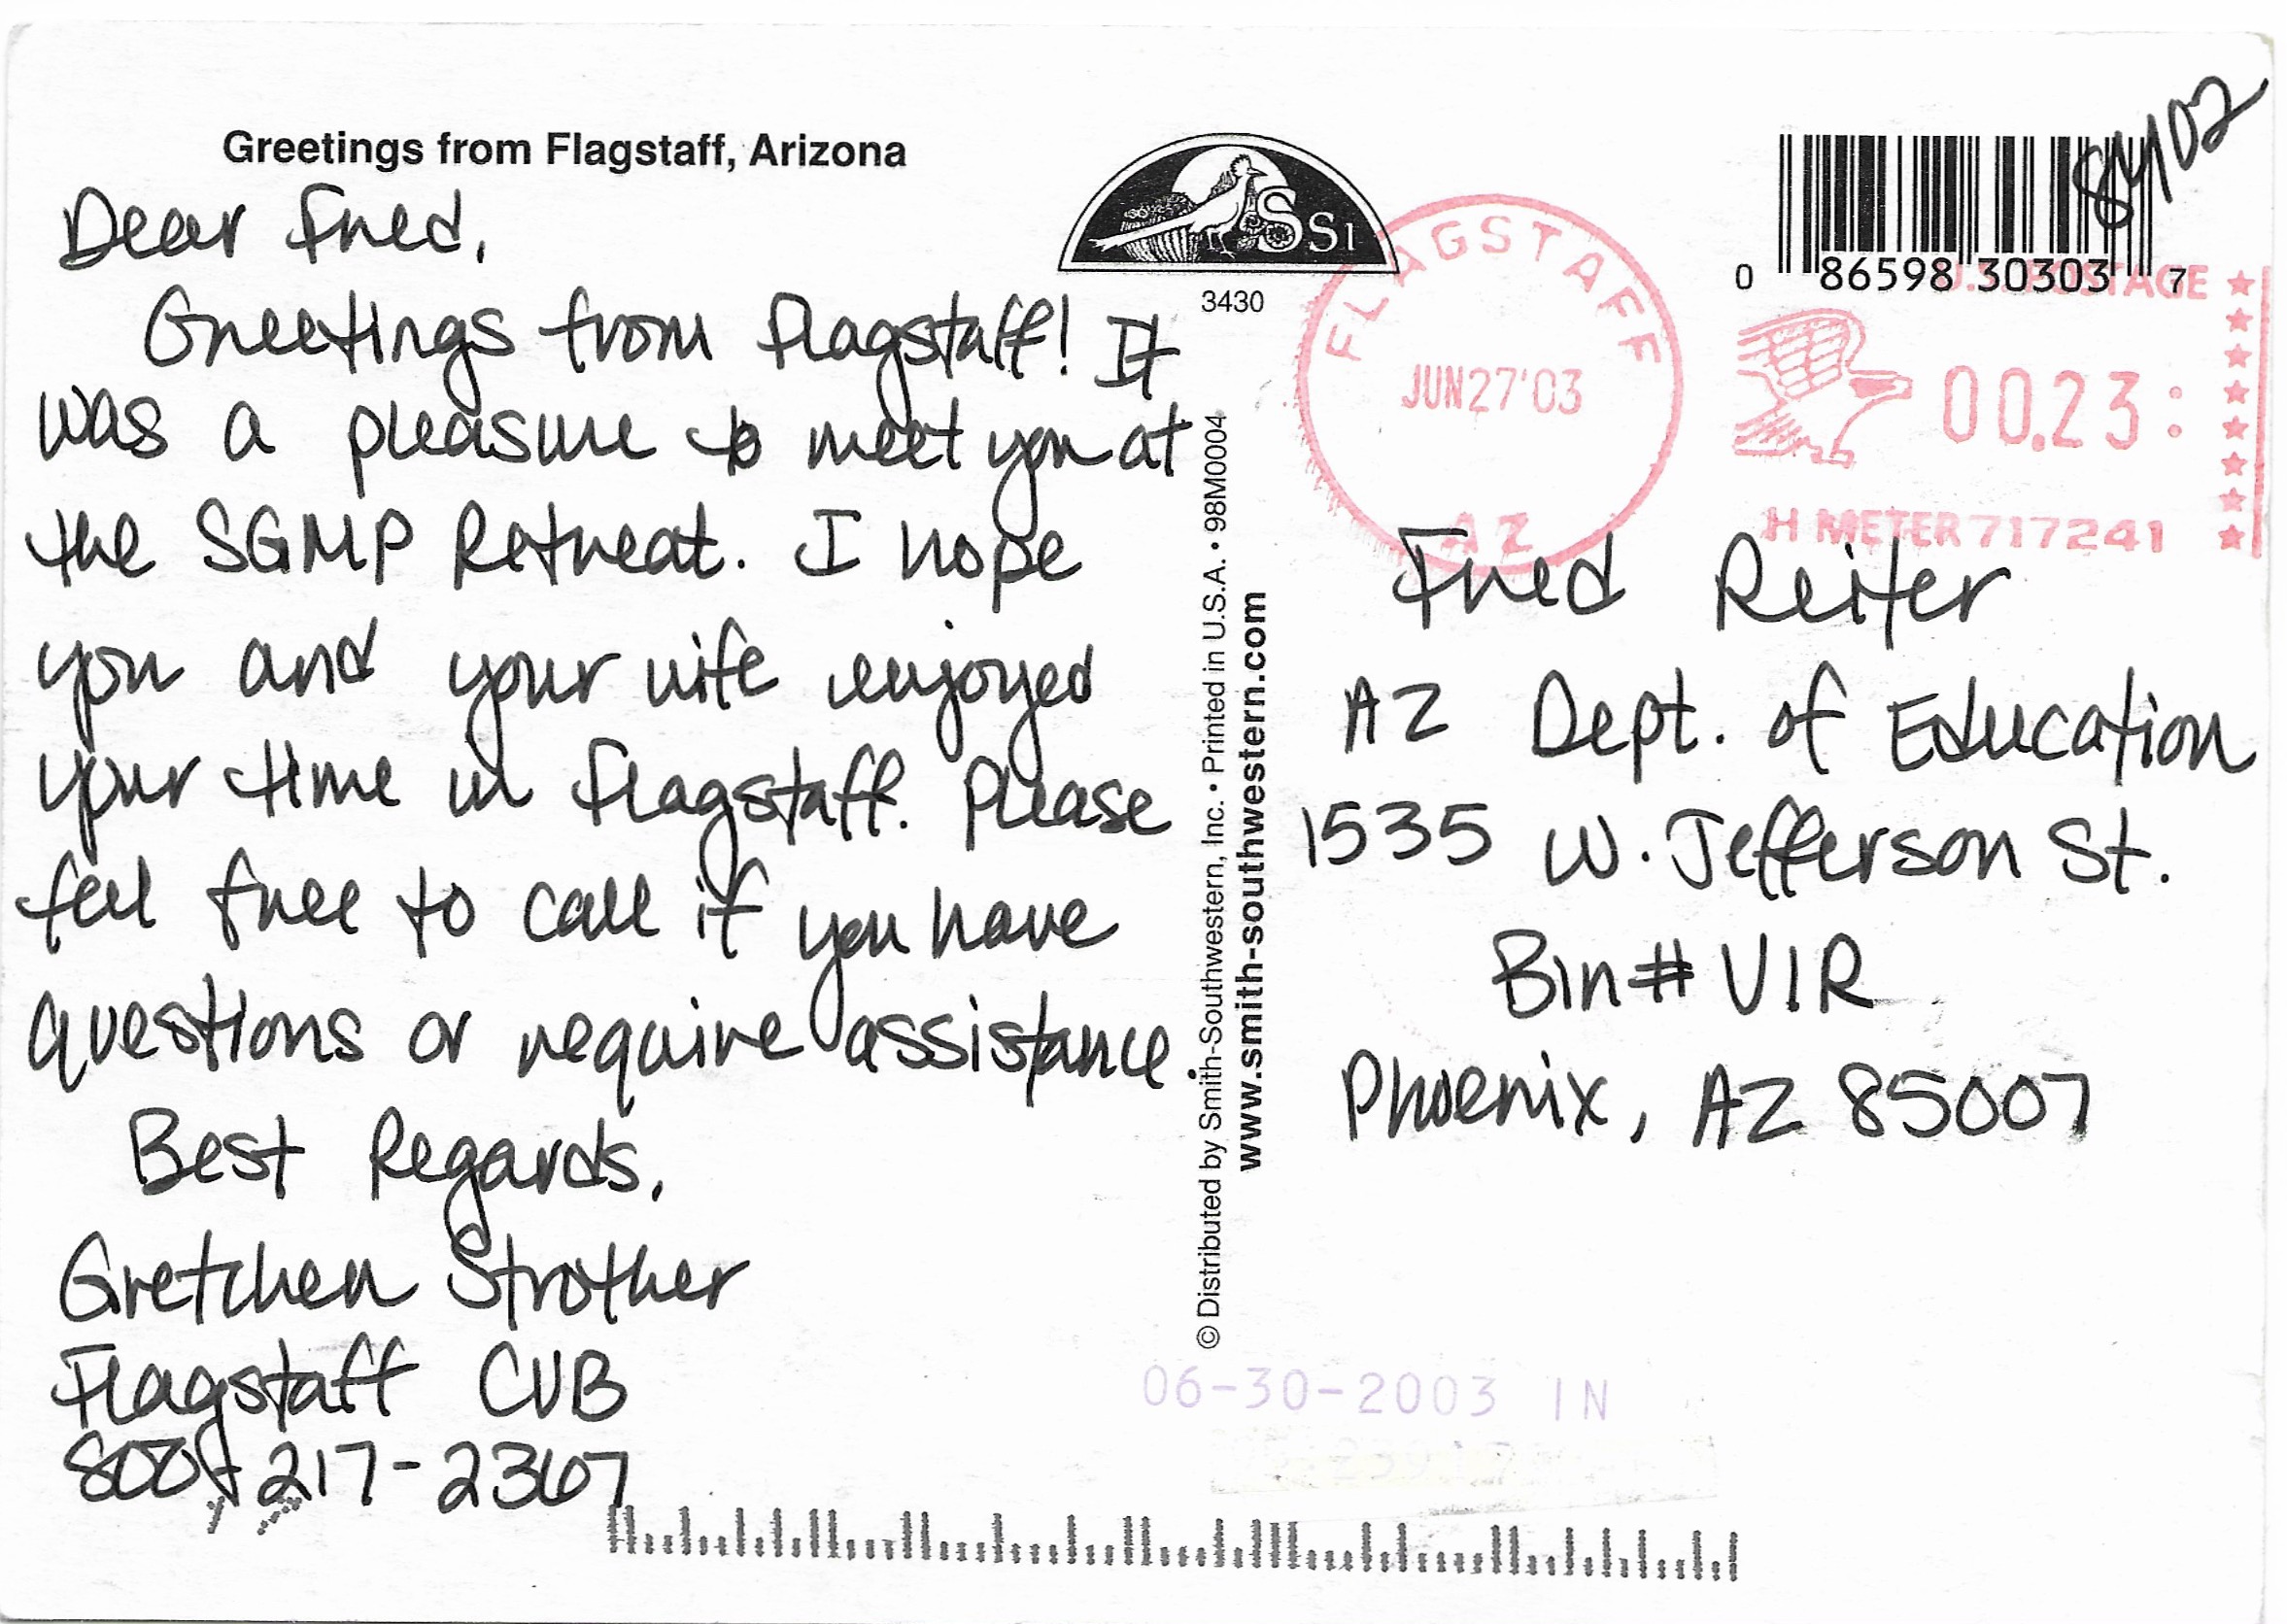 Greetings from Flagstaff, Arizona
Dear Fred,
Greetings from Flagstaff! It
was a pleasure to meet you at
the SGMP Retreat. I hope
you and your wife enjoyed
your time in Flagstaff. Please
feel free to call if you have
questions or require assistance.
Best Regards,
Gretchen Strother
Flagstaff CVB
800 217-2367
SSI
3430
© Distributed by Smith-Southwestern, Inc. • Printed in U.S.A. • 98M0004
www.smith-southwestern.com
FLAGSTAFF
JUN27'03
AZ
0 86598 30303 7
U.S. POSTAGE
00.23
H METER 717241
Fred Reiter
AZ Dept. of Education
1535 W. Jefferson St.
Bin# VIR
Phoenix, AZ 85007
06-30-2003 IN